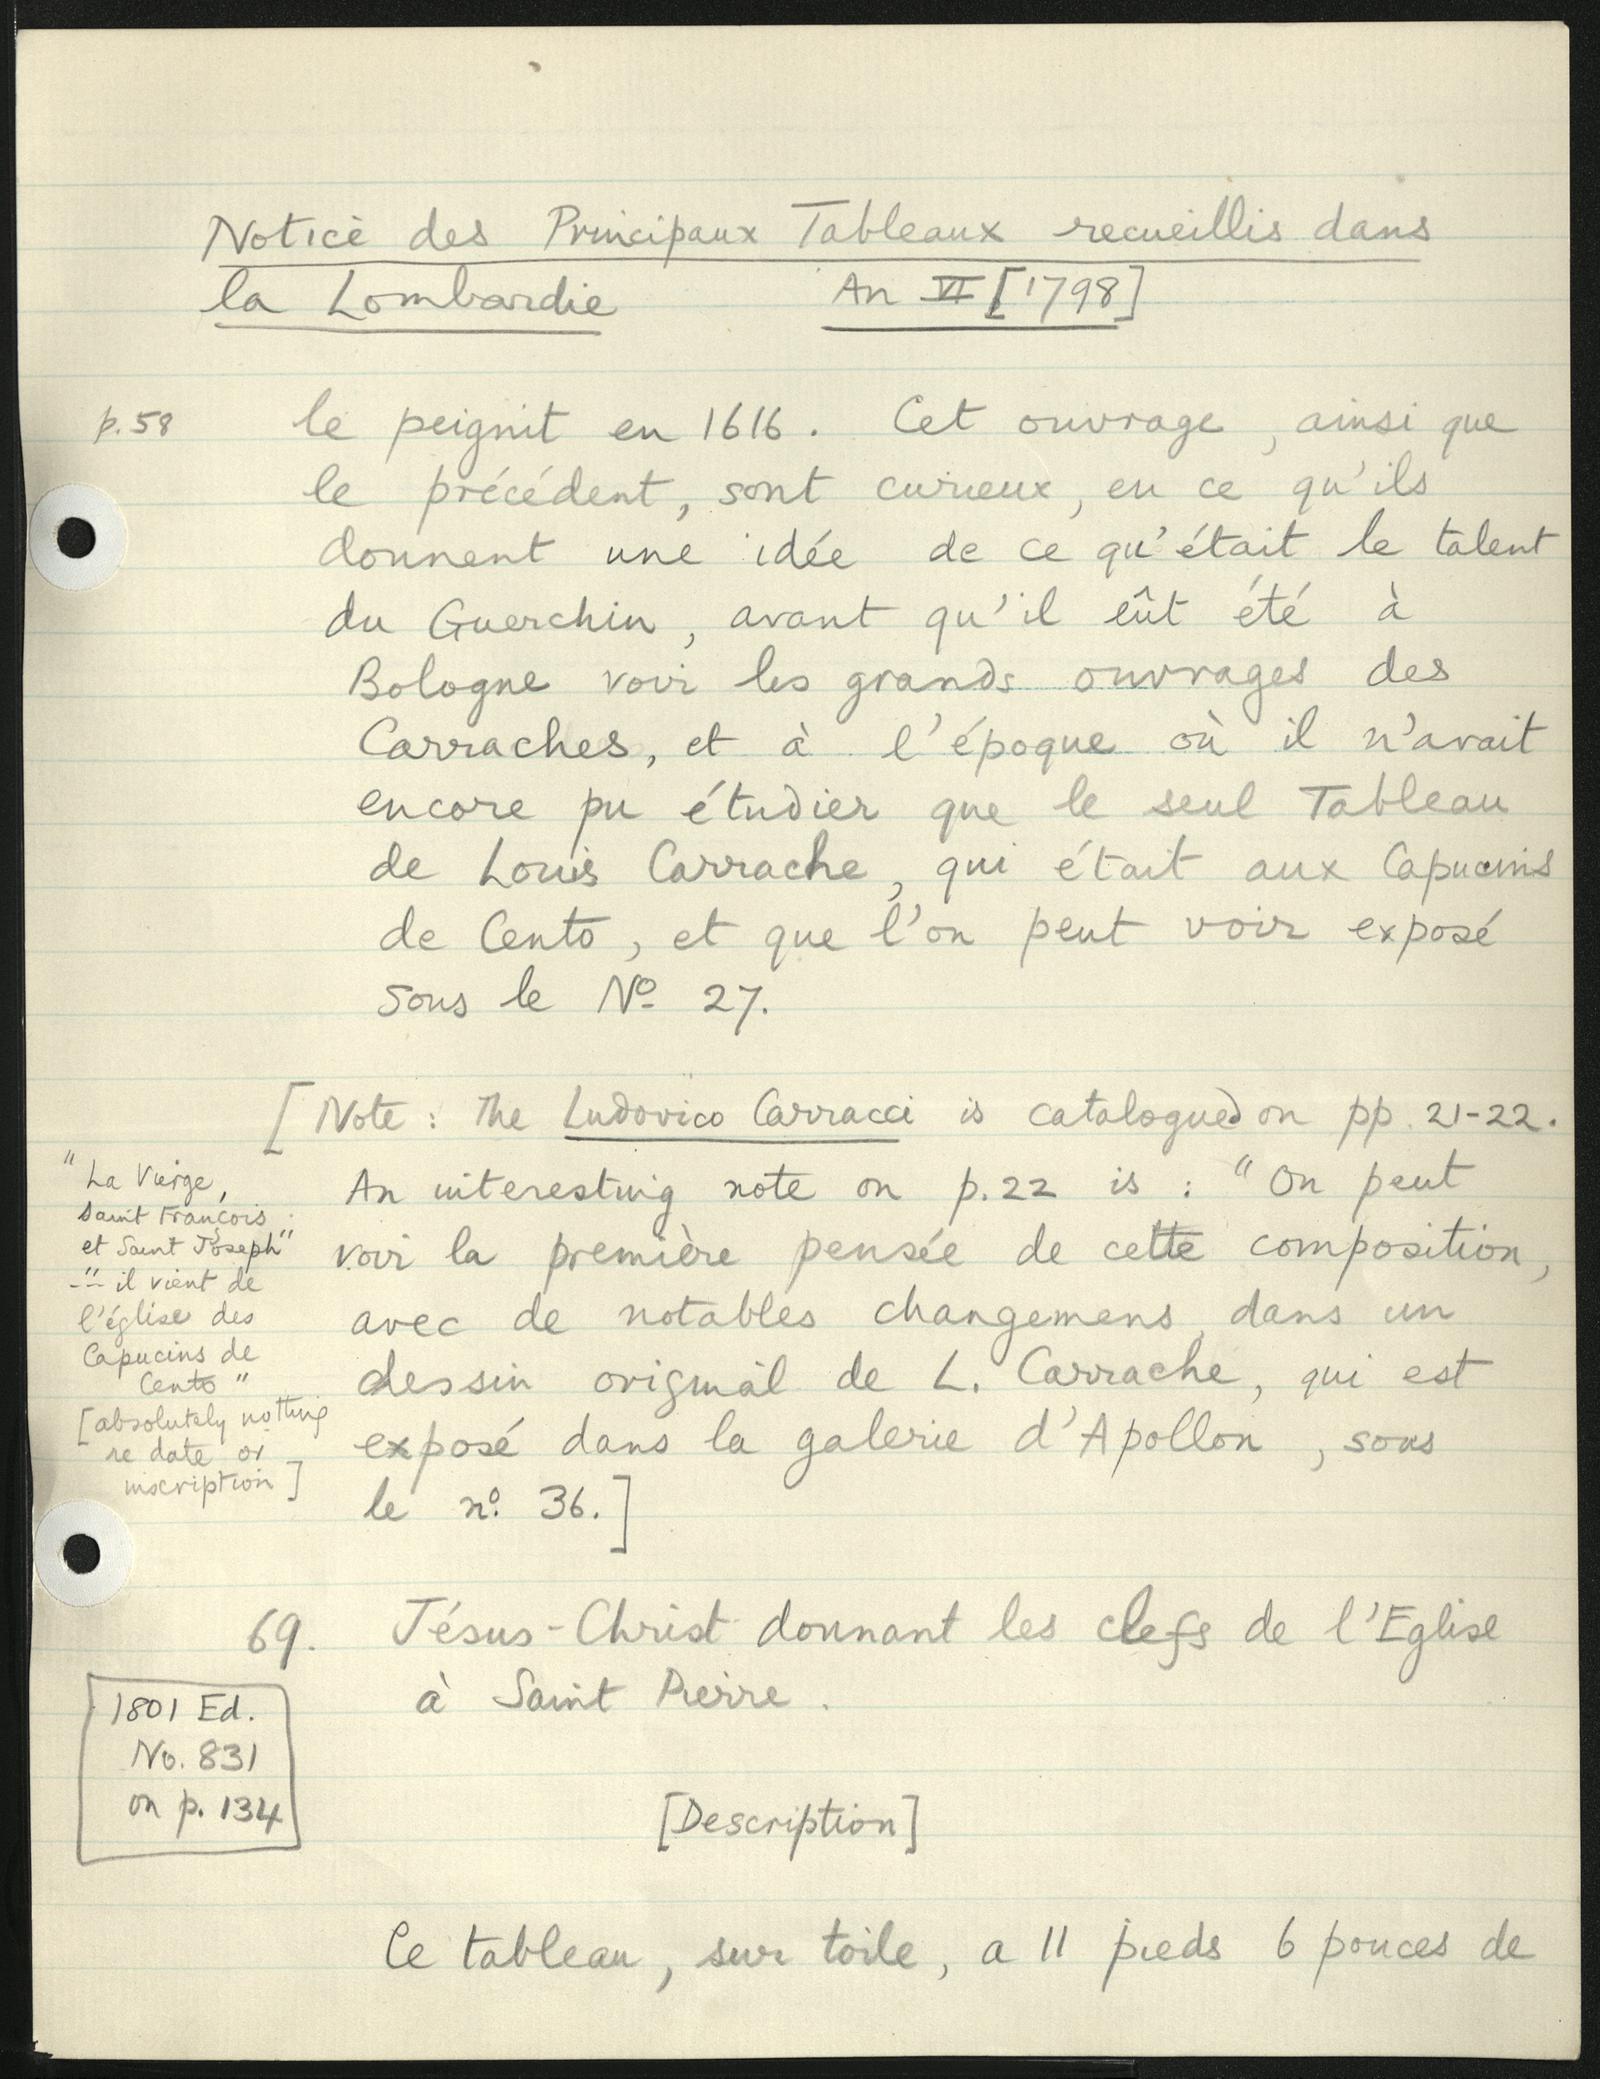 Notice des Principaux Tableaux recueillis dans
la Lombardie An VI [1798]
p.58 le peignit en 1616. Cet ouvrage, ainsi que
le précédent, sont curieux, en ce qu'ils
donnent une idée de ce qu'était le talent
du Guerchin, avant qu'il eût été à
Bologne voir les grands ouvrages des
Carraches, et à l'époque où il n'avait
encore pu étudier que le seul Tableau
de Louis Carrache, qui était aux Capucins
de Cento, et que l'on peut voir exposé
sous le No 27.
[Note: The Ludovico Carracci is catalogued on pp. 21-22.
An interesting note on p.22 is: "On peut
voir la première pensée de cette composition,
avec de notables changemens, dans un
dessin original de L. Carrache, qui est
exposé dans la galerie d'Apollon, sous
le no. 36.]
"La Vierge,
Saint François
et Saint Joseph"
-"- il vient de
l'église des
Capucins de
Cento"
[absolutely nothing
re date or
inscription]
69. Jésus-Christ donnant les clefs de l'Eglise
à Saint Pierre.
1801 Ed.
No. 831
on p. 134
[Description]
Ce tableau, sur toile, a 11 pieds 6 pouces de